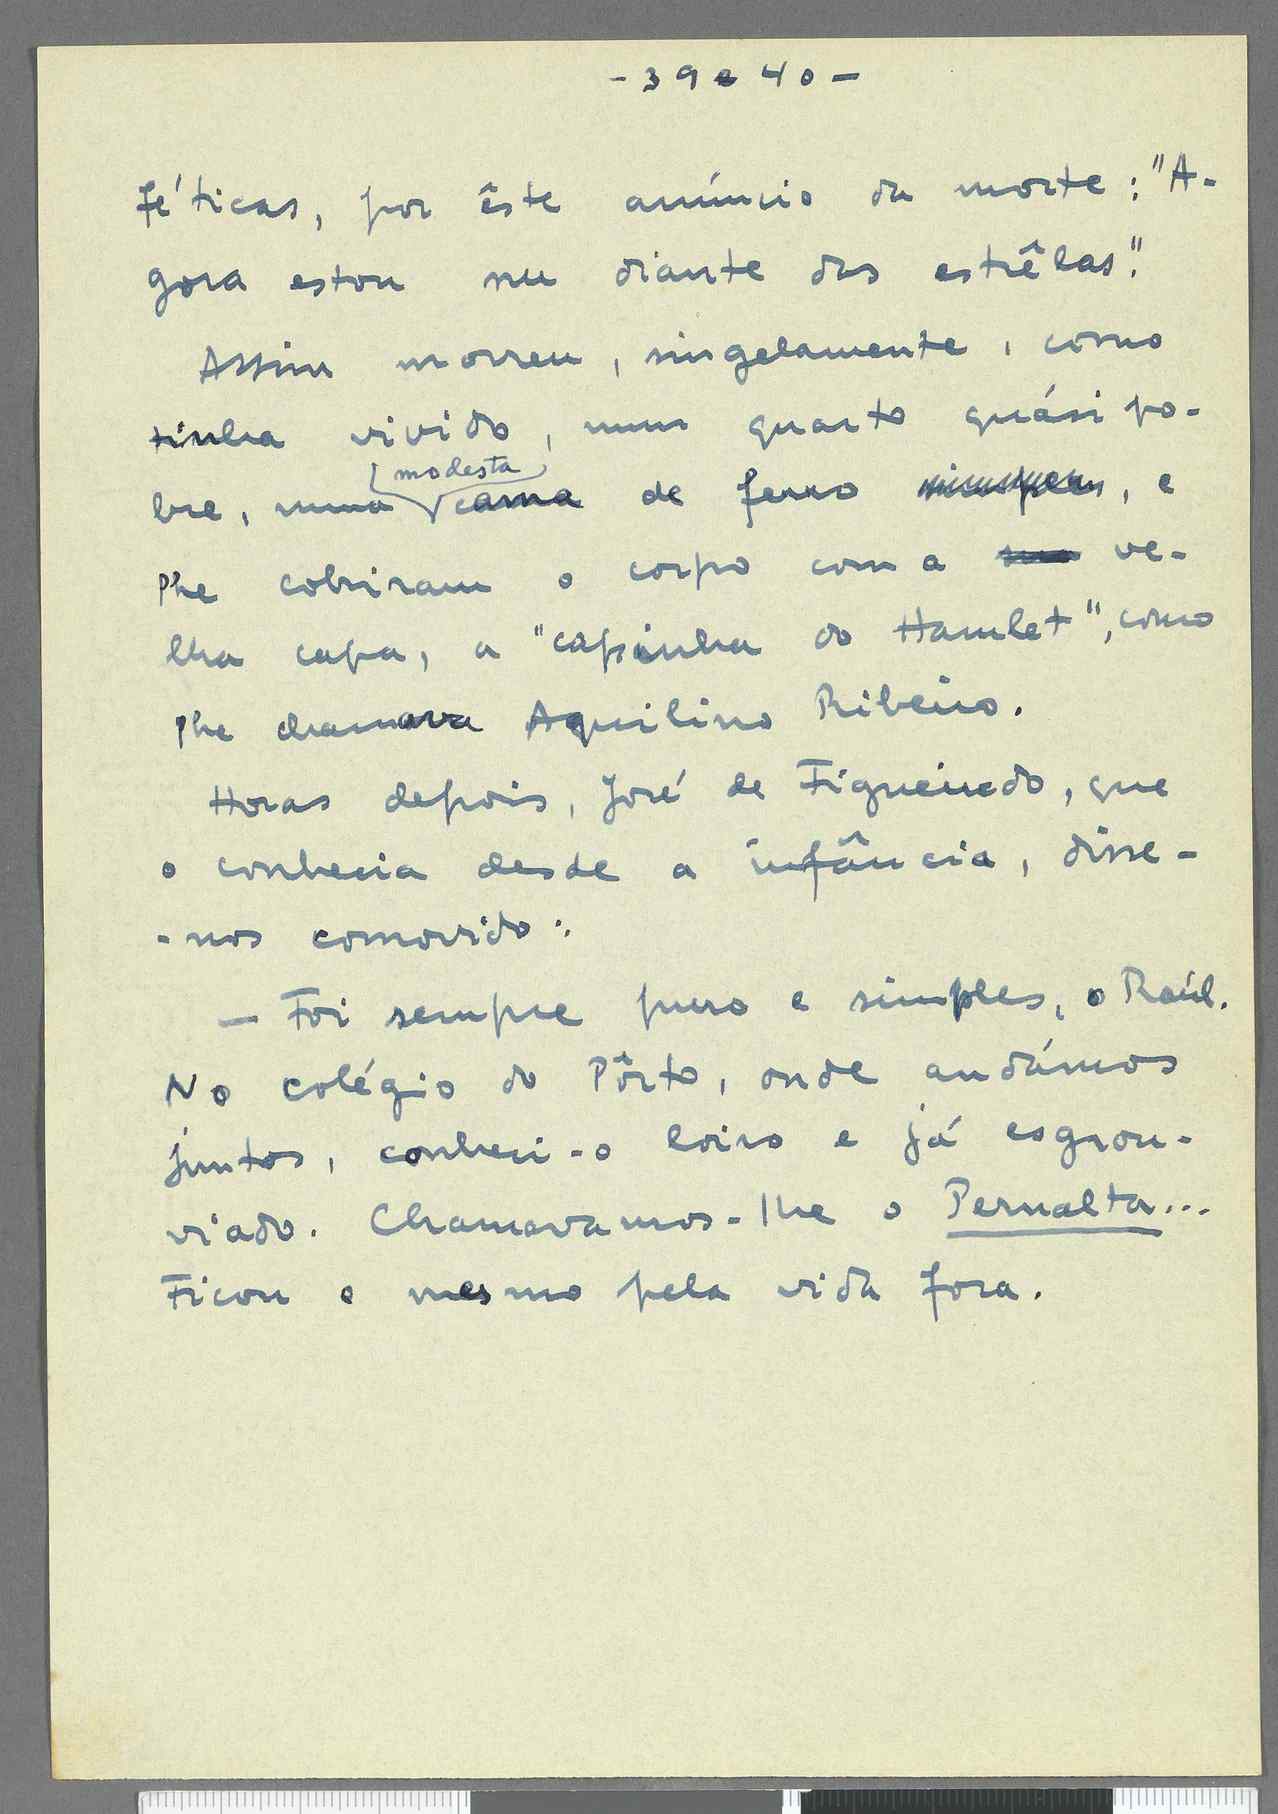 - 39 e 40 -
féticas, por êste anúncio da morte: "A-
gora estou nu diante das estrêlas".
Assim morreu, singelamente, como
tinha vivido, num quarto quási po-
bre, numa modesta cama de ferro, e
lhe cobriram o corpo com a ve-
lha capa, a "capinha do Hamlet", como
lhe chamava Aquilino Ribeiro.
Horas depois, José de Figueiredo, que
o conhecia desde a infância, disse-
-nos comovido:
— Foi sempre puro e simples, o Raúl.
No colégio do Pôrto, onde andámos
juntos, conheci-o loiro e já esgrou-
viado. Chamavamos-lhe o Pernalta...
Ficou o mesmo pela vida fora.